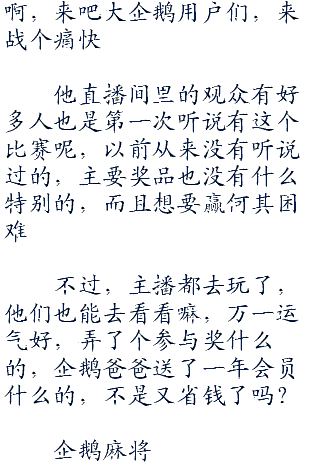 啊，来吧大企鹅用户们，来
战个痛快
他直播间里的观众有好
多人也是第一次听说有这个
比赛呢，以前从来没有听说
过的，主要奖品也没有什么
特别的，而且想要赢何其困
难
不过，主播都去玩了，
他们也能去看看嘛，万一运
气好，弄了个参与奖什么
的，企鹅爸爸送了一年会员
什么的，不是又省钱了吗？
企鹅麻将